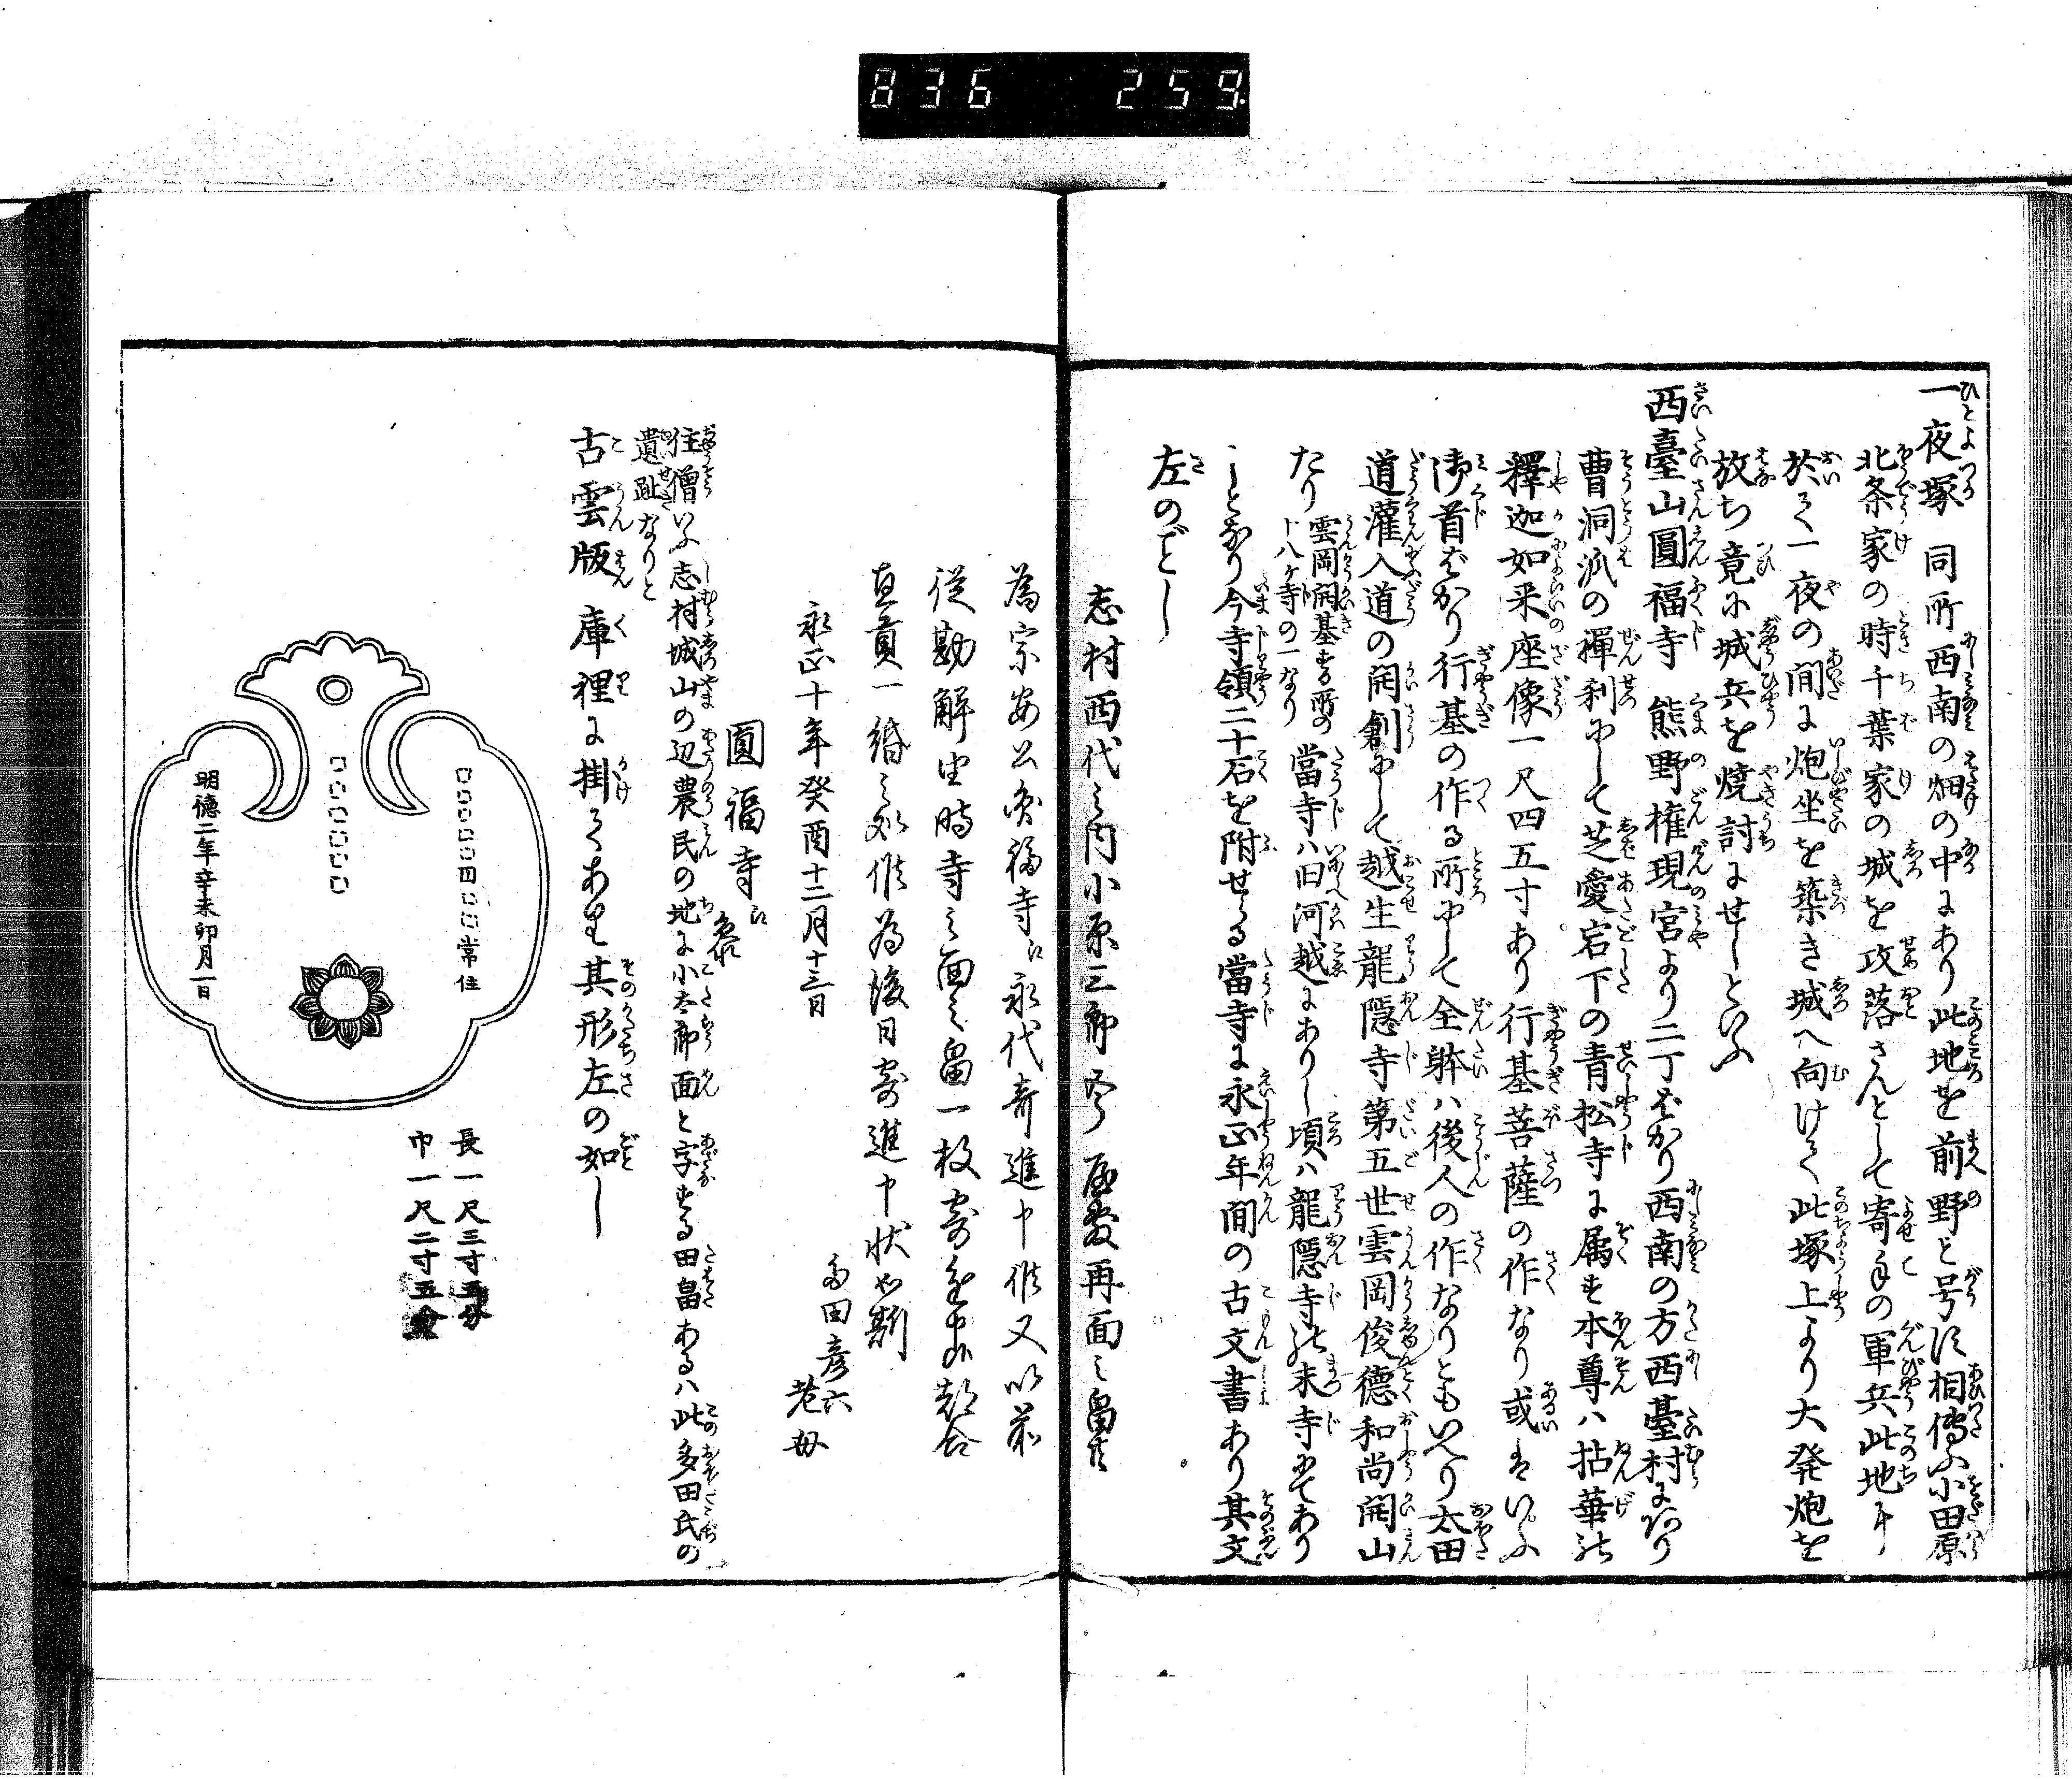 836 259
一夜塚 同所西南の畑の中にあり此地を前野と号く相傳ふ小田原
北条家の時千葉家の城を攻落さんとして寄手の軍兵此地に
於て一夜の間に炮坐を築き城へ向けて此塚上より大発炮を
放ち竟に城兵を焼討にせしといふ
西臺山圓福寺 熊野権現宮より二丁ばかり西南の方西臺村にあり
曹洞派の禪刹にして芝愛宕下の青松寺に属す本尊ハ拈華の
釋迦如来座像一尺四五寸あり行基菩薩の作なり或はいふ
御首ばかり行基の作る所にして全躰ハ後人の作なりともいへり太田
道灌入道の開創にして越生龍隱寺第五世雲岡俊德和尚開山
たり
雲岡開基する所の
十八ケ寺の一なり
當寺ハ旧河越にありし頃ハ龍隱寺の末寺にてあり
しとなり今寺領二十石を附せらる當寺に永正年間の古文書あり其文
左のごとし
志村西代之内小原三郎
再面之畠
為宗安公
福寺
永代寄進申候又以
従勘解由時寺之面之畠一枚寄進申
直貢一緡之
候為後日寄進申状如斯
永正十年癸酉十二月十三日
多田彦六
老母
圓福寺
住僧いふ志村城山の辺農民の地に小太郎面と字する田畠あるハ此多田氏の
遺趾なりと
古雲版 庫裡に掛てあり其形左の如し
□□□□□四□□常住
□□□□□□
明徳二年辛未卯月一日
長一尺三寸五分
巾一尺二寸五分